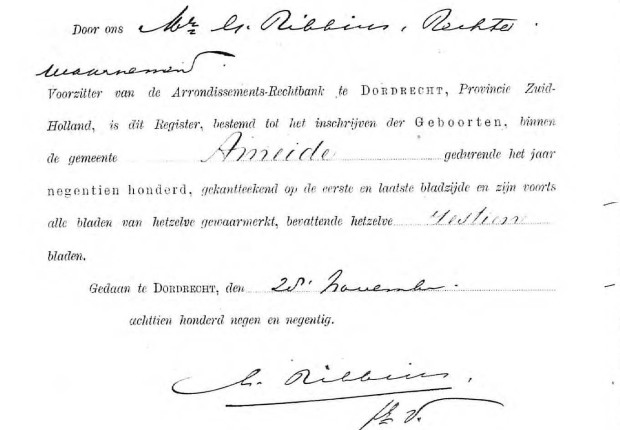 Door ons Mr. G. Ribbius, Rechter
waarnemend
Voorzitter van de Arrondissements-Rechtbank te DORDRECHT, Provincie Zuid-
Holland, is dit Register, bestemd tot het inschrijven der Geboorten, binnen
de gemeente Ameide gedurende het jaar
negentien honderd, gekantteekend op de eerste en laatste bladzijde en zijn voorts
alle bladen van hetzelve gewaarmerkt, bevattende hetzelve zestien
bladen.
Gedaan te DORDRECHT, den November.
achttien honderd negen en negentig.
G. Ribbius,